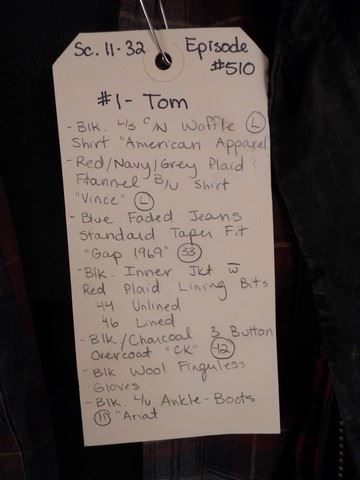 Sc. 11-32 Episode
#510
#1- Tom
- Blk. L/S C/N Waffle L
Shirt "American Apparel
- Red/Navy/Grey Plaid
Flannel B/U Shirt
"Vince" L
- Blue Faded Jeans
Standard Taper Fit
"Gap 1969" 33
- Blk. Inner Jkt w
Red Plaid Lining Bits
44 Unlined
46 Lined
- Blk/Charcoal 3 Button
Overcoat "CK" 42
- Blk. Wool Fingerless
- Gloves
- Blk. L/U Ankle-Boots
11 "Ariat